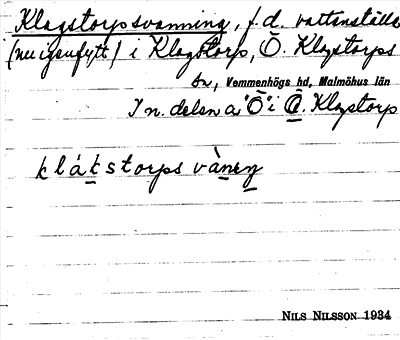 Klagstorpsvanning, f.d. vattenställe
(nu igenfyllt) i Klagstorp, Ö. Klagstorps
sn, Vemmenhögs hd, Malmöhus län
I n. delen a "Ö" i Ö. Klagstorp
klákstorps vànèŋ
NILS NILSSON 1934